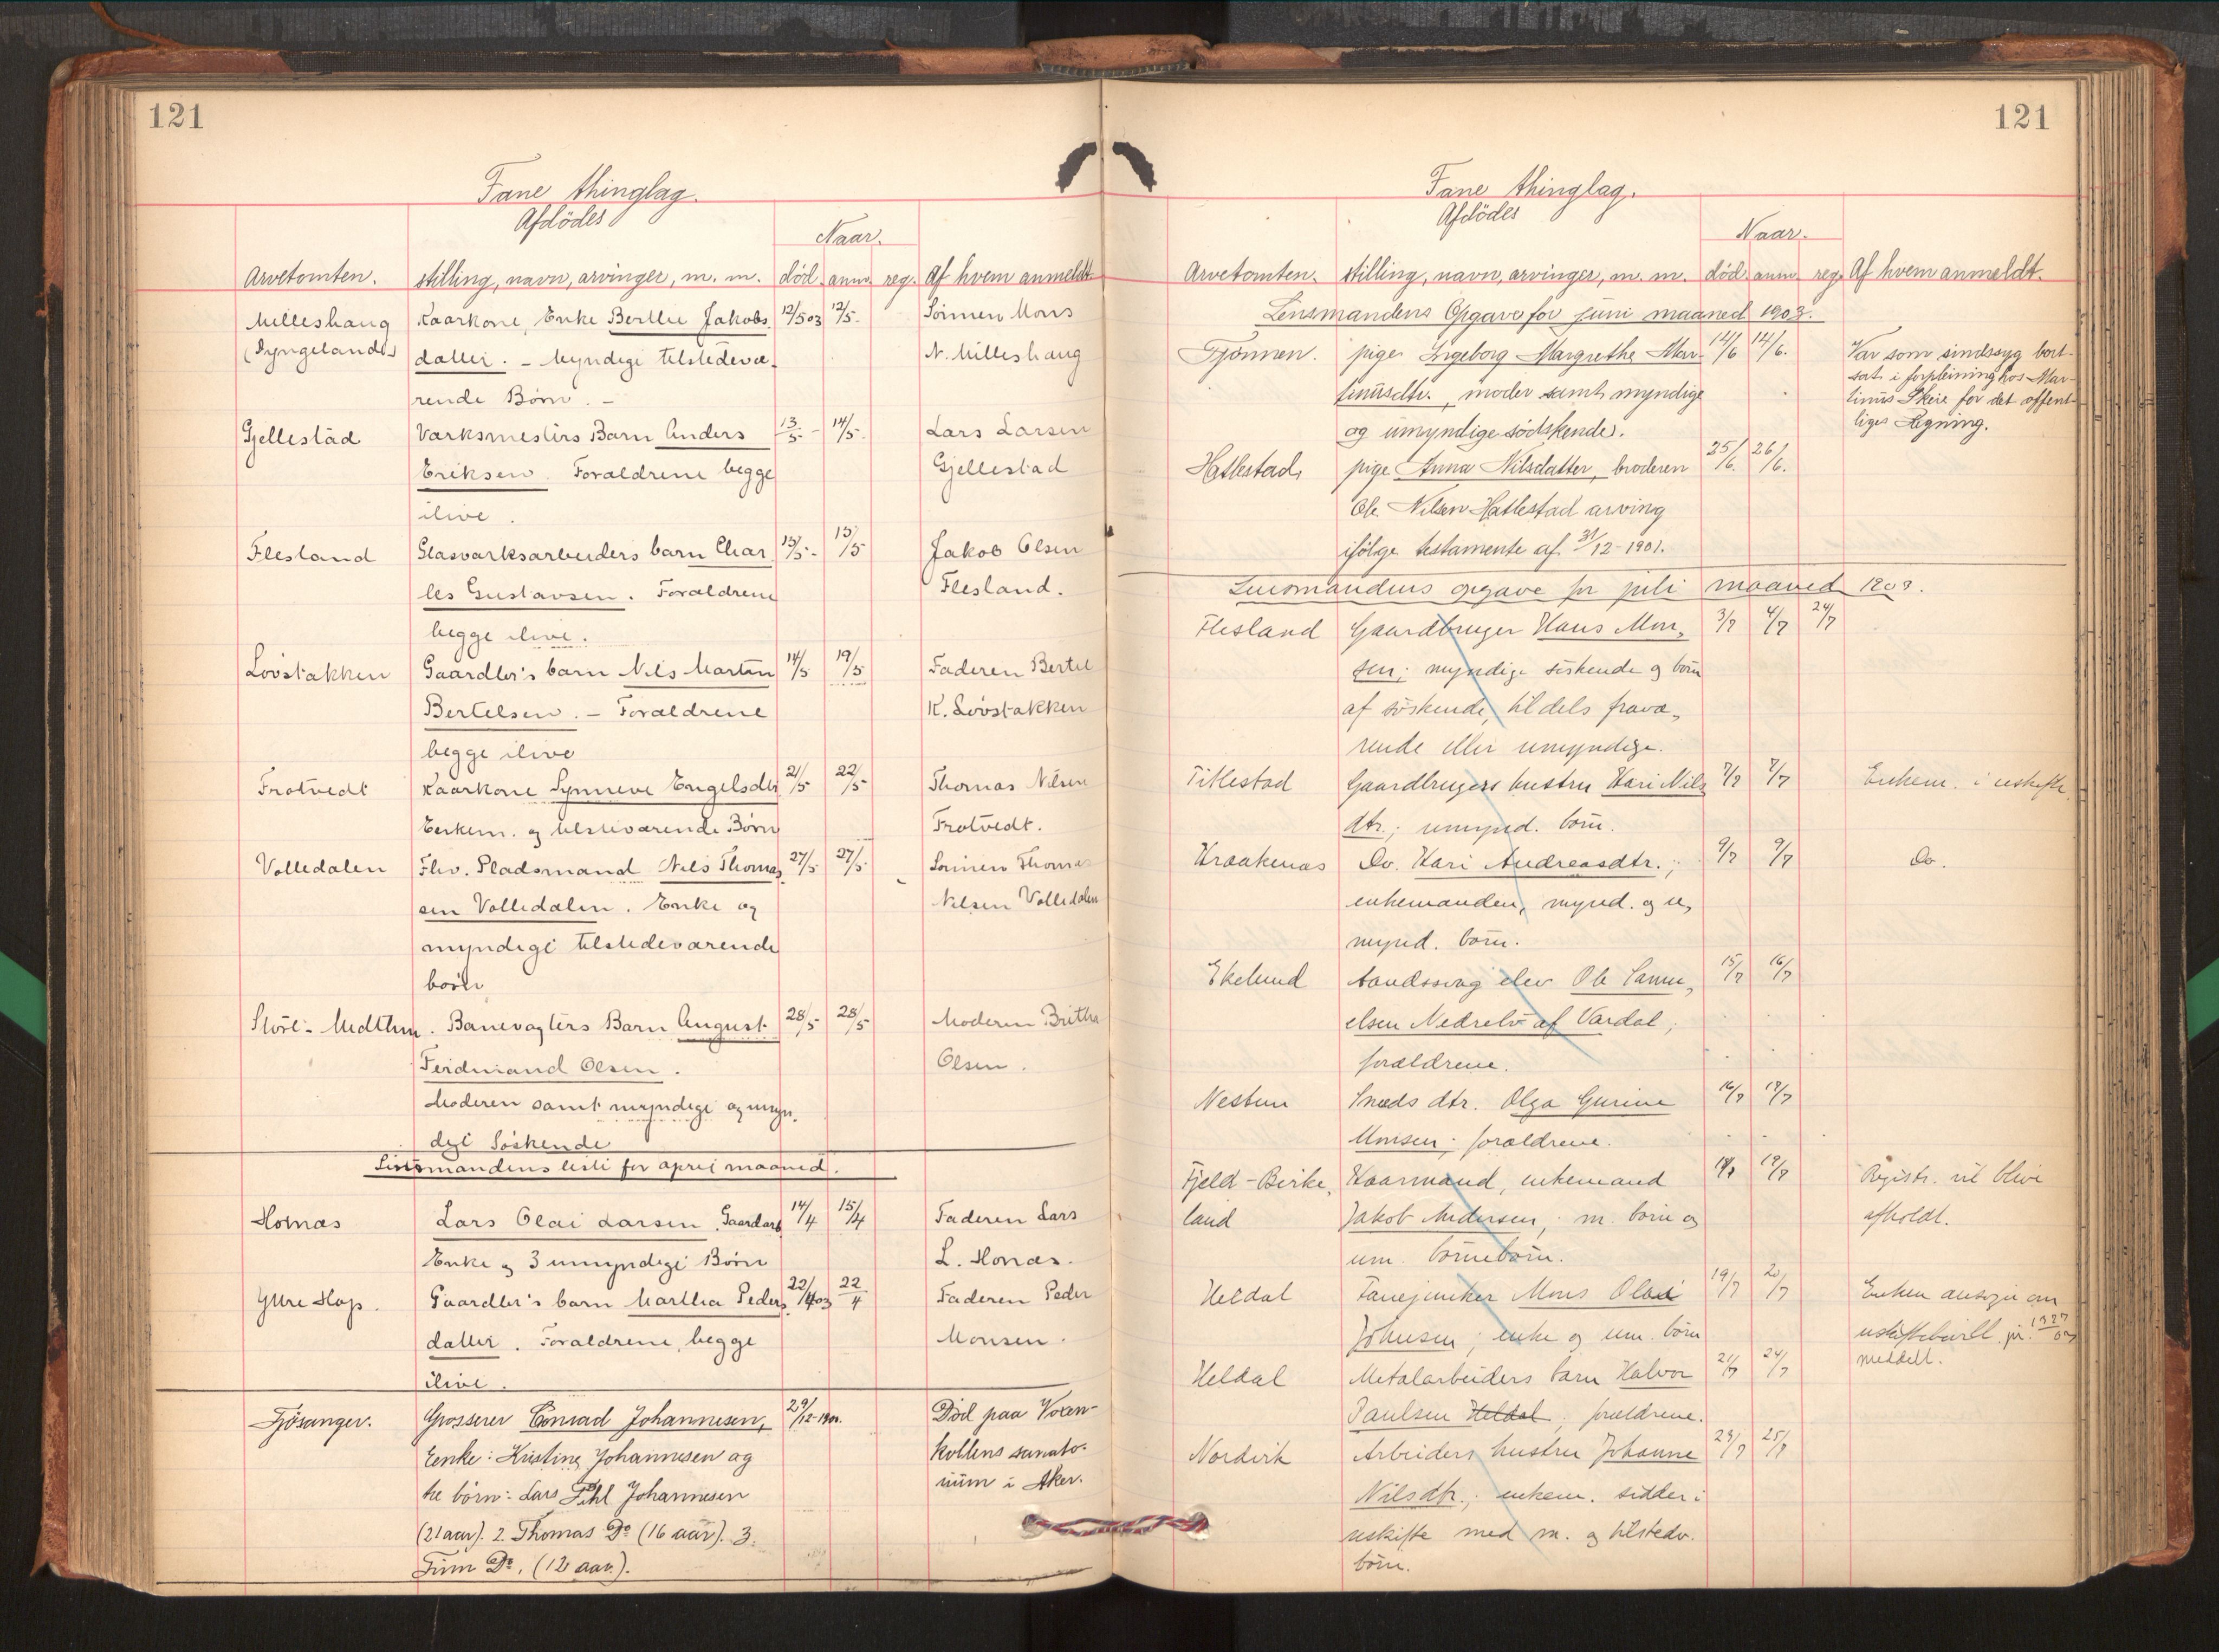 121
Fane thinglag.
Afdödes
Naar.
Arvetomten. stilling, navn, arvinger, m. m. död. anm. reg. Af hvem anmeldt.
Milleshaug Kaarkone, Enke Berthe Jakobs 12/5 03 12/5. Sönnen Mons
datter. – Myndige tilstedevæ- N. Milleshaug
rende Börn. –
Gjellestad Værksmesters Barn Anders 13/5 – 14/5. Lars Larsen
Eriksen. Forældrene begge Gjellestad
ilive.
Flesland Glasværksarbeiders barn Char 13/5 – 15/5 Jakob Olsen
les Gustavsen. Forældrene Flesland.
begge ilive.
Lövstakken Gaardbr's barn Nils Martin 14/5 19/5 Faderen Bertel
Bertelsen. – Forældrene K. Lövstakken
begge ilive
Frotvedt Kaarkone Synneve Engelsdtr 21/5 22/5 Thomas Nilsen
Enkem. og tilsteværende Börn Frotvedt.
Volledalen Flv. Pladsmand Nils Thomas 27/5 27/5 Sönnen Thomas
sen Volledalen. Enke og Nilsen Volledalen
myndige tilstedeværende
börn
Store-Midthun. Banevogters Barn August 28/5 28/5 Moderen Britha
Ferdinand Olsen. Olsen.
Moderen samt myndige og umyn.
dige Söskende
Lensmandens liste for april maaned.
Hornæs Lars Olai Larsen, Gaardarb 14/4 15/4 Faderen Lars
Enke og 3 umyndige Börn L. Hornæs.
Ytre Hop. Gaardbr's barn Martha Peders 22/4 03 22/4 Faderen Peder
datter. Forældrene begge Monsen.
ilive.
Fjösanger. Grosserer Conrad Johannesen, 29/12-1901. Död paa Voxen-
Enke: Kristine Johannesen og kollens sanato-
tre börn: Lars Pihl Johannesen rium i Aker.
(21 aar). 2. Thomas Do (16 aar). 3.
Finn Do. (12 aar.).
121
Fane thinglag.
Afdödes
Naar.
Arvetomten. stilling, navn, arvinger, m. m. död. anm. reg. Af hvem anmeldt.
Lensmandens Opgave for juni maaned 1903.
Tjönnen. pige Ingeborg Margrethe Mar- 14/6 14/6. Var som sindssyg bort-
tinusdtr., moder samt myndige sat i forpleining hos Mar-
tinus Skeie for det offent-
og umyndige södskende. liges Regning.
Hatlestad pige Anna Nilsdatter, broderen 25/6. 26/6.
Ole Nilsen Hatlestad arving
ifölge testamente af 31/12-1901.
Lensmandens opgave for juli maaned 1903.
Flesland Gaardbruger Hans Mon, 3/7 4/7 24/7
sen; myndige söskende og börn
af söskende, tildels fravæ,
rende eller umyndige.
Titlestad Gaardbrugers hustru Kari Nils 7/7 7/7 Enkem. i uskifte
dtr.; umynd. börn.
Kraakenæs Do. Kari Andreasdtr.; 9/7 9/7 Do.
enkemanden, mynd. og u,
mynd. börn.
Ekelund Aandssvag elev Ole Samu, 15/7 16/7
elsen Nedrelö af Vardal;
forældrene.
Nestun Smeds dtr. Olga Gurine 16/7 18/7
Monsen; forældrene.
Fjeld-Birke, Kaarmand, enkemand 18/7 19/7 Registr. vil blive
land Jakob Andersen; m. börn og afholdt.
um. börnebörn.
Heldal TømmeR Mons Olai 19/7 20/7 Enken ansøger om
Johnsen; enke og um. börn
meddelt.
Heldal Metalarbeiders barn Halvor 21/7 24/7
Paulsen Heldal; forældrene.
Nordvik Arbeiders hustru Johanne 23/7 25/7
Nilsdtr.; enkem. sidder i
uskifte med m. og tilstedv.
börn.